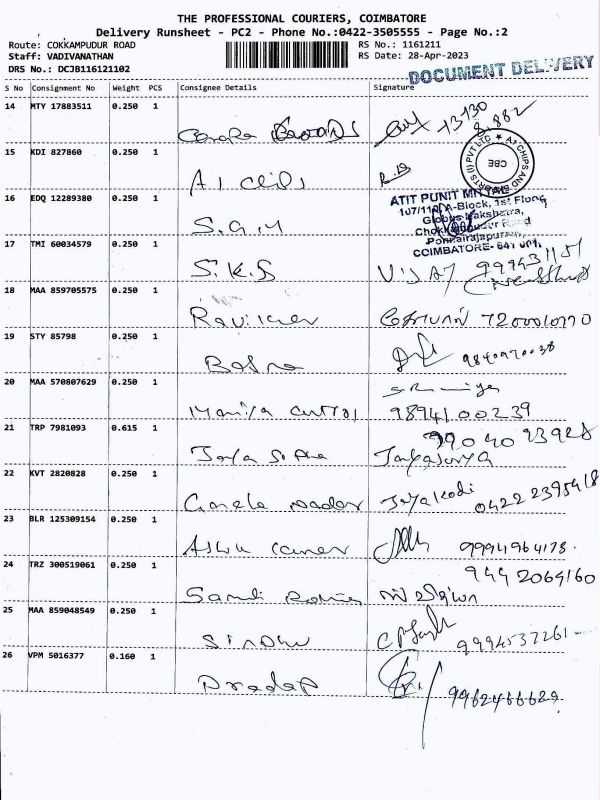 THE PROFESSIONAL COURIERS, COIMBATORE
Delivery Runsheet - PC2 - Phone No.:0422-3505555 - Page No.:2
Route: COKKAMPUDUR ROAD RS No.: 1161211
Staff: VADIVANATHAN RS Date: 28-Apr-2023
DRS No.: DCJB116121102
DOCUMENT DELIVERY
S No Consignment No Weight PCS Consignee Details Signature
14 MTY 17883511 0.250 1
15 KDI 827860 0.250 1 A1 Chips
A1 CHIPS AND EXPORTS (I) PVT LTD ★ CBE
16 EDQ 12289380 0.250 1 S.G.M
ATIT PUNIT MITTAL
107/110, A-Block, 1st Floor,
Globus Nakshatra,
Chokkampudur Road
Ponnairajapuram,
COIMBATORE- 641 001.
17 TMI 60034579 0.250 1 S.K.S VIJAY
18 MAA 859705575 0.250 1 Ravikumar கோபால் 7200010770
19 STY 85798 0.250 1 9840970038
20 MAA 570807629 0.250 1 98941 00239
21 TRP 7981093 0.615 1 Jaya Sudha Jayasurya
22 KVT 2820828 0.250 1 Jayakodi 0422 2395418
23 BLR 125309154 0.250 1 9994964178.
24 TRZ 300519061 0.250 1 9442069160
25 MAA 859048549 0.250 1 Sindhu 9994537261
26 VPM 5016377 0.160 1 Pradap 9962466629